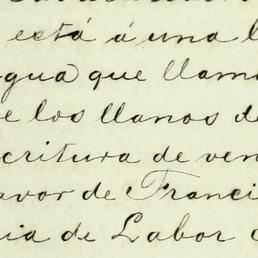 está á una l
gua que llam
e los llanos de
critura de ven
avor de Franci
ia de Labor